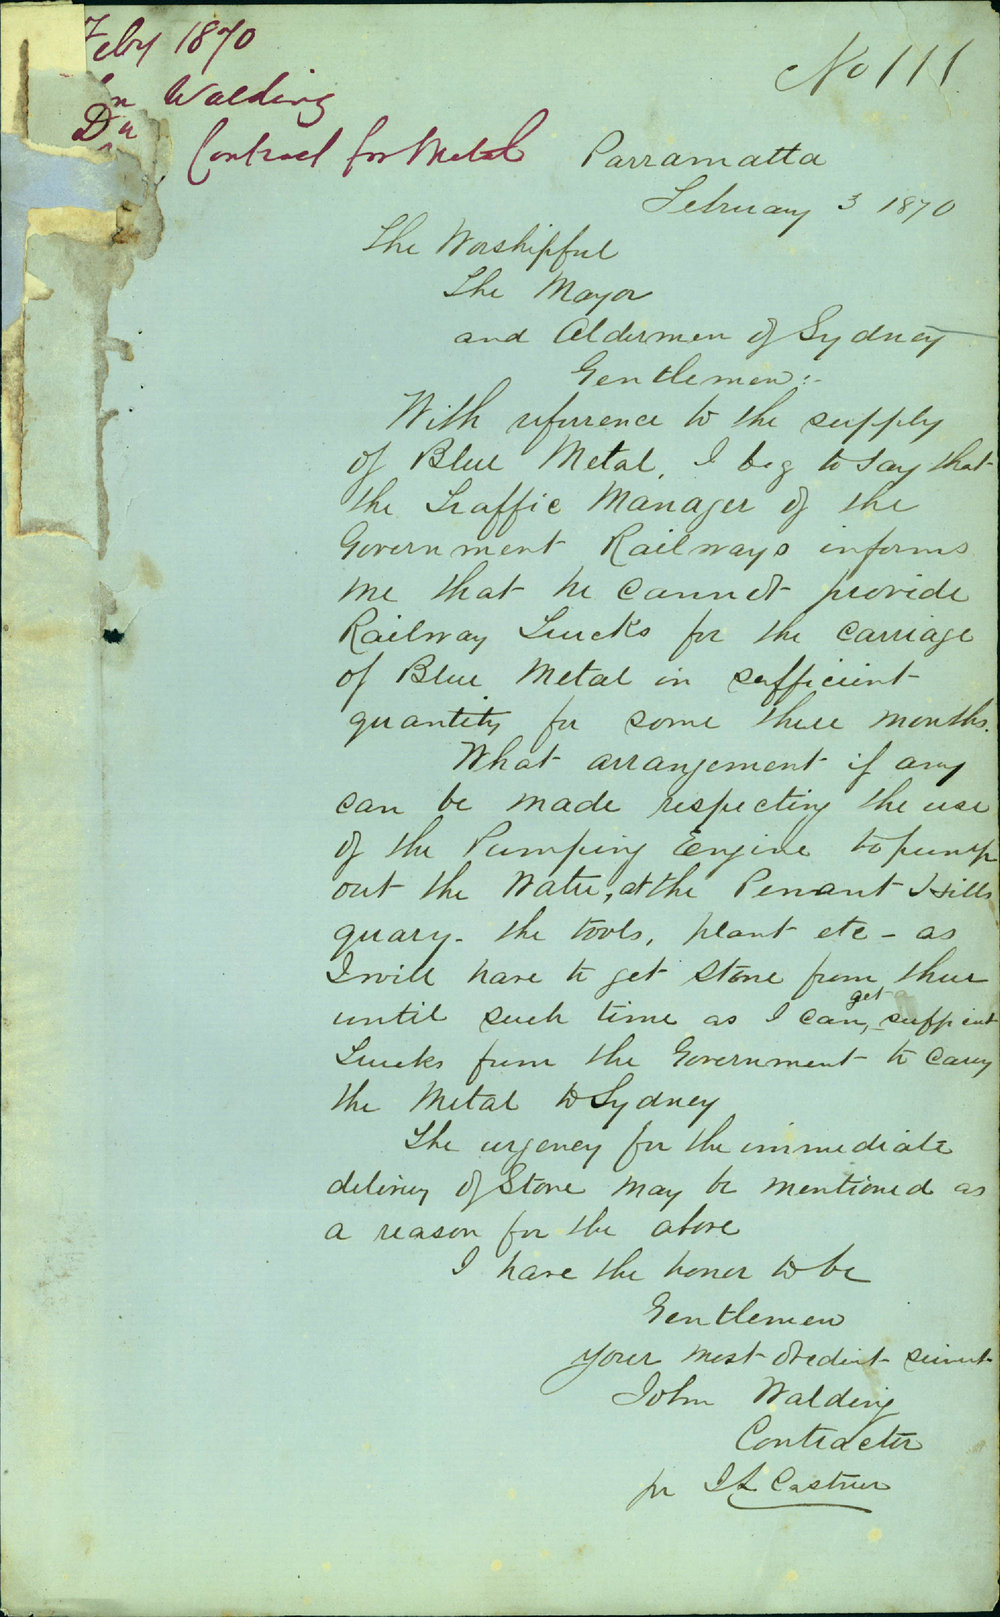 Feby 1870
No 111
Walding
Contract for Metal
Parramatta
February 3 1870
The Worshipful
The Mayor
and Aldermen of Sydney
Gentlemen:-
With referrence to the supply
of Blue Metal, I beg to say that
the Traffic Manager of the
Government Railways informs
me that he cannot provide
Railway Trucks for the carriage
of Blue Metal in sufficient
quantity for some three months.
What arrangement if any
can be made respecting the use
of the Pumping Engine to pump
out the Water, at the Penant Hills
quary - the tools, plant etc - as
I will have to get stone from there
until such time as I can, get
Trucks from the Government to carry
the Metal to Sydney
The urgency for the immediate
delivery of Stone may be mentioned as
a reason for the above
I have the honor to be
Gentlemen
Your most obedient servent
John Walding
Contractor
pr